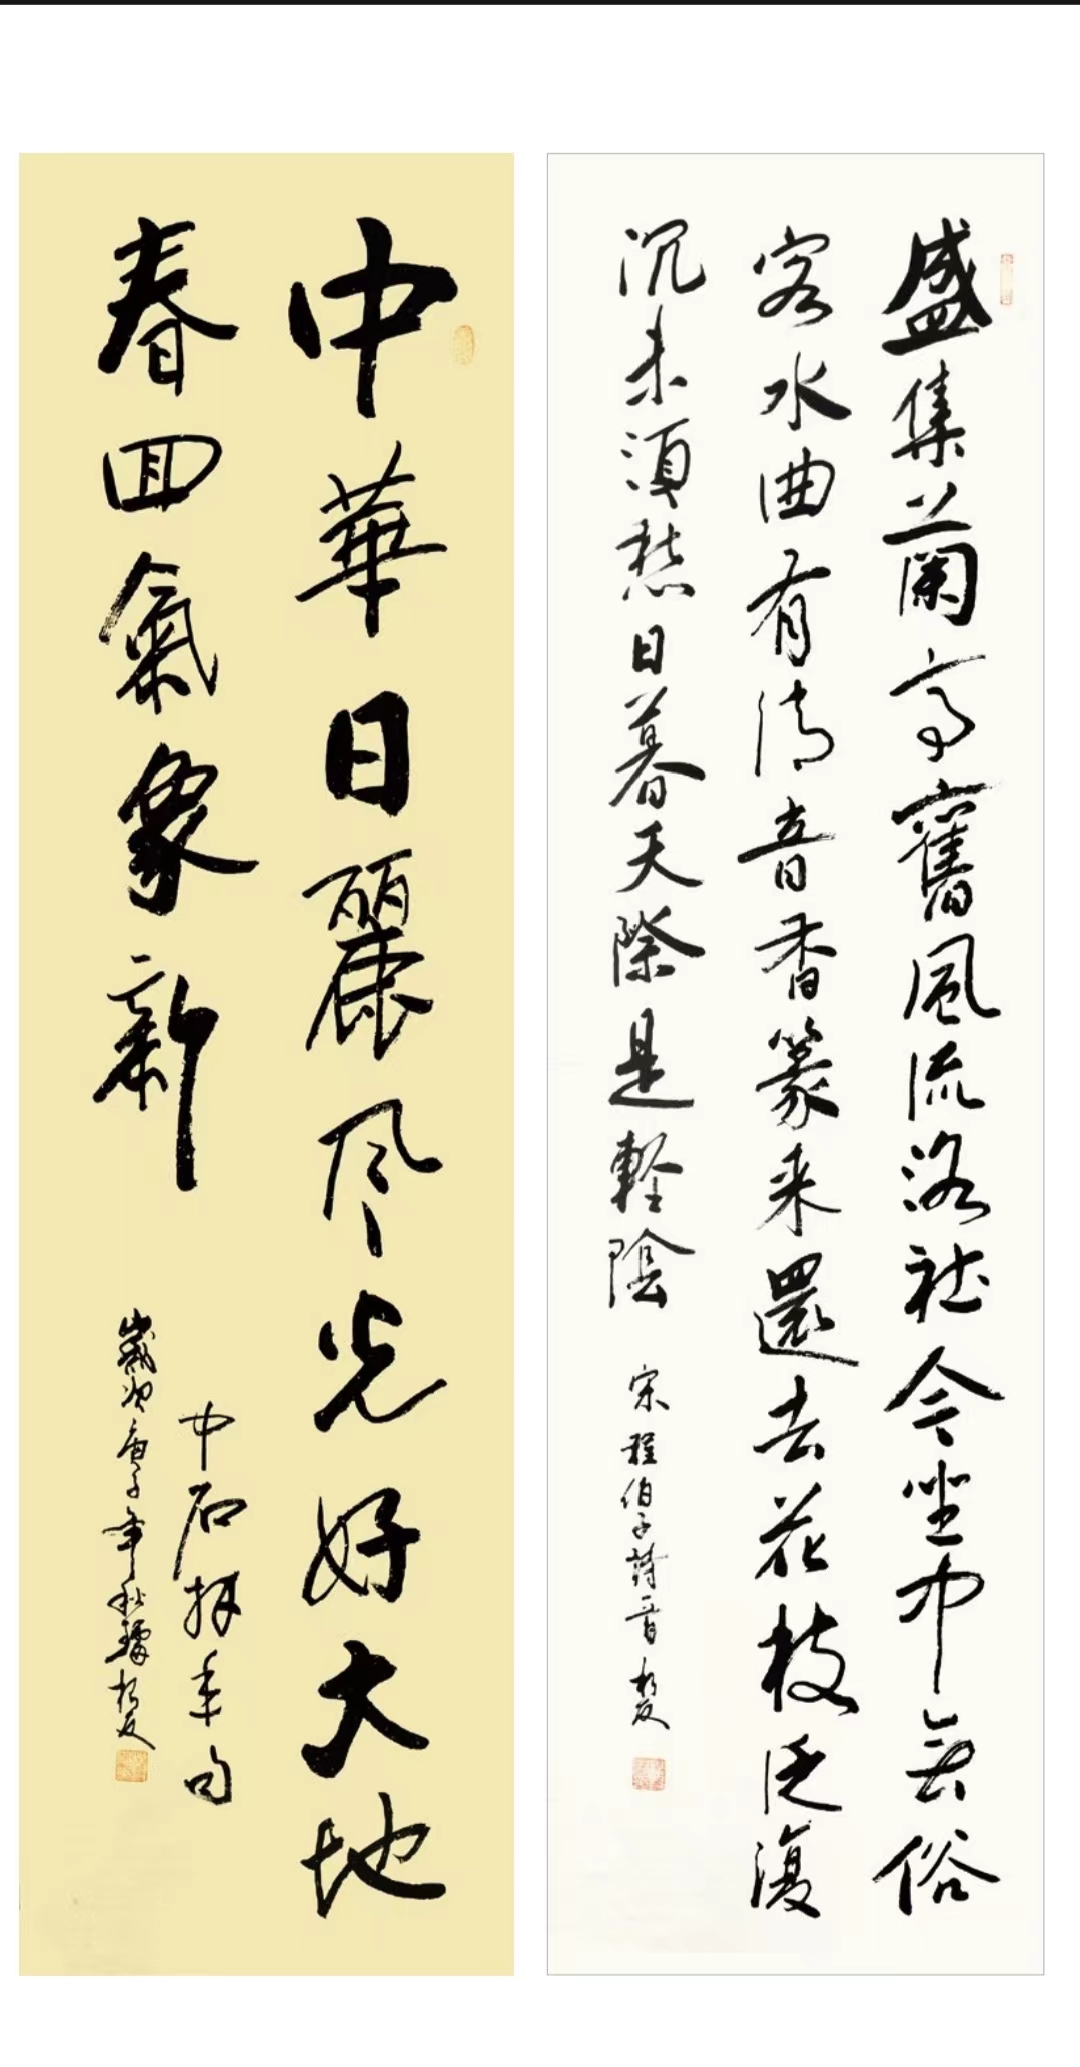 盛集蘭亭舊風流洛社今坐中無俗
客水曲有清音香篆来還去花枝泛復
沉未須愁日暮天際是輕陰
宋程伯子詩一首
中華日麗风光好大地
春回氣象新
中石拜年句
歲次庚子年秋